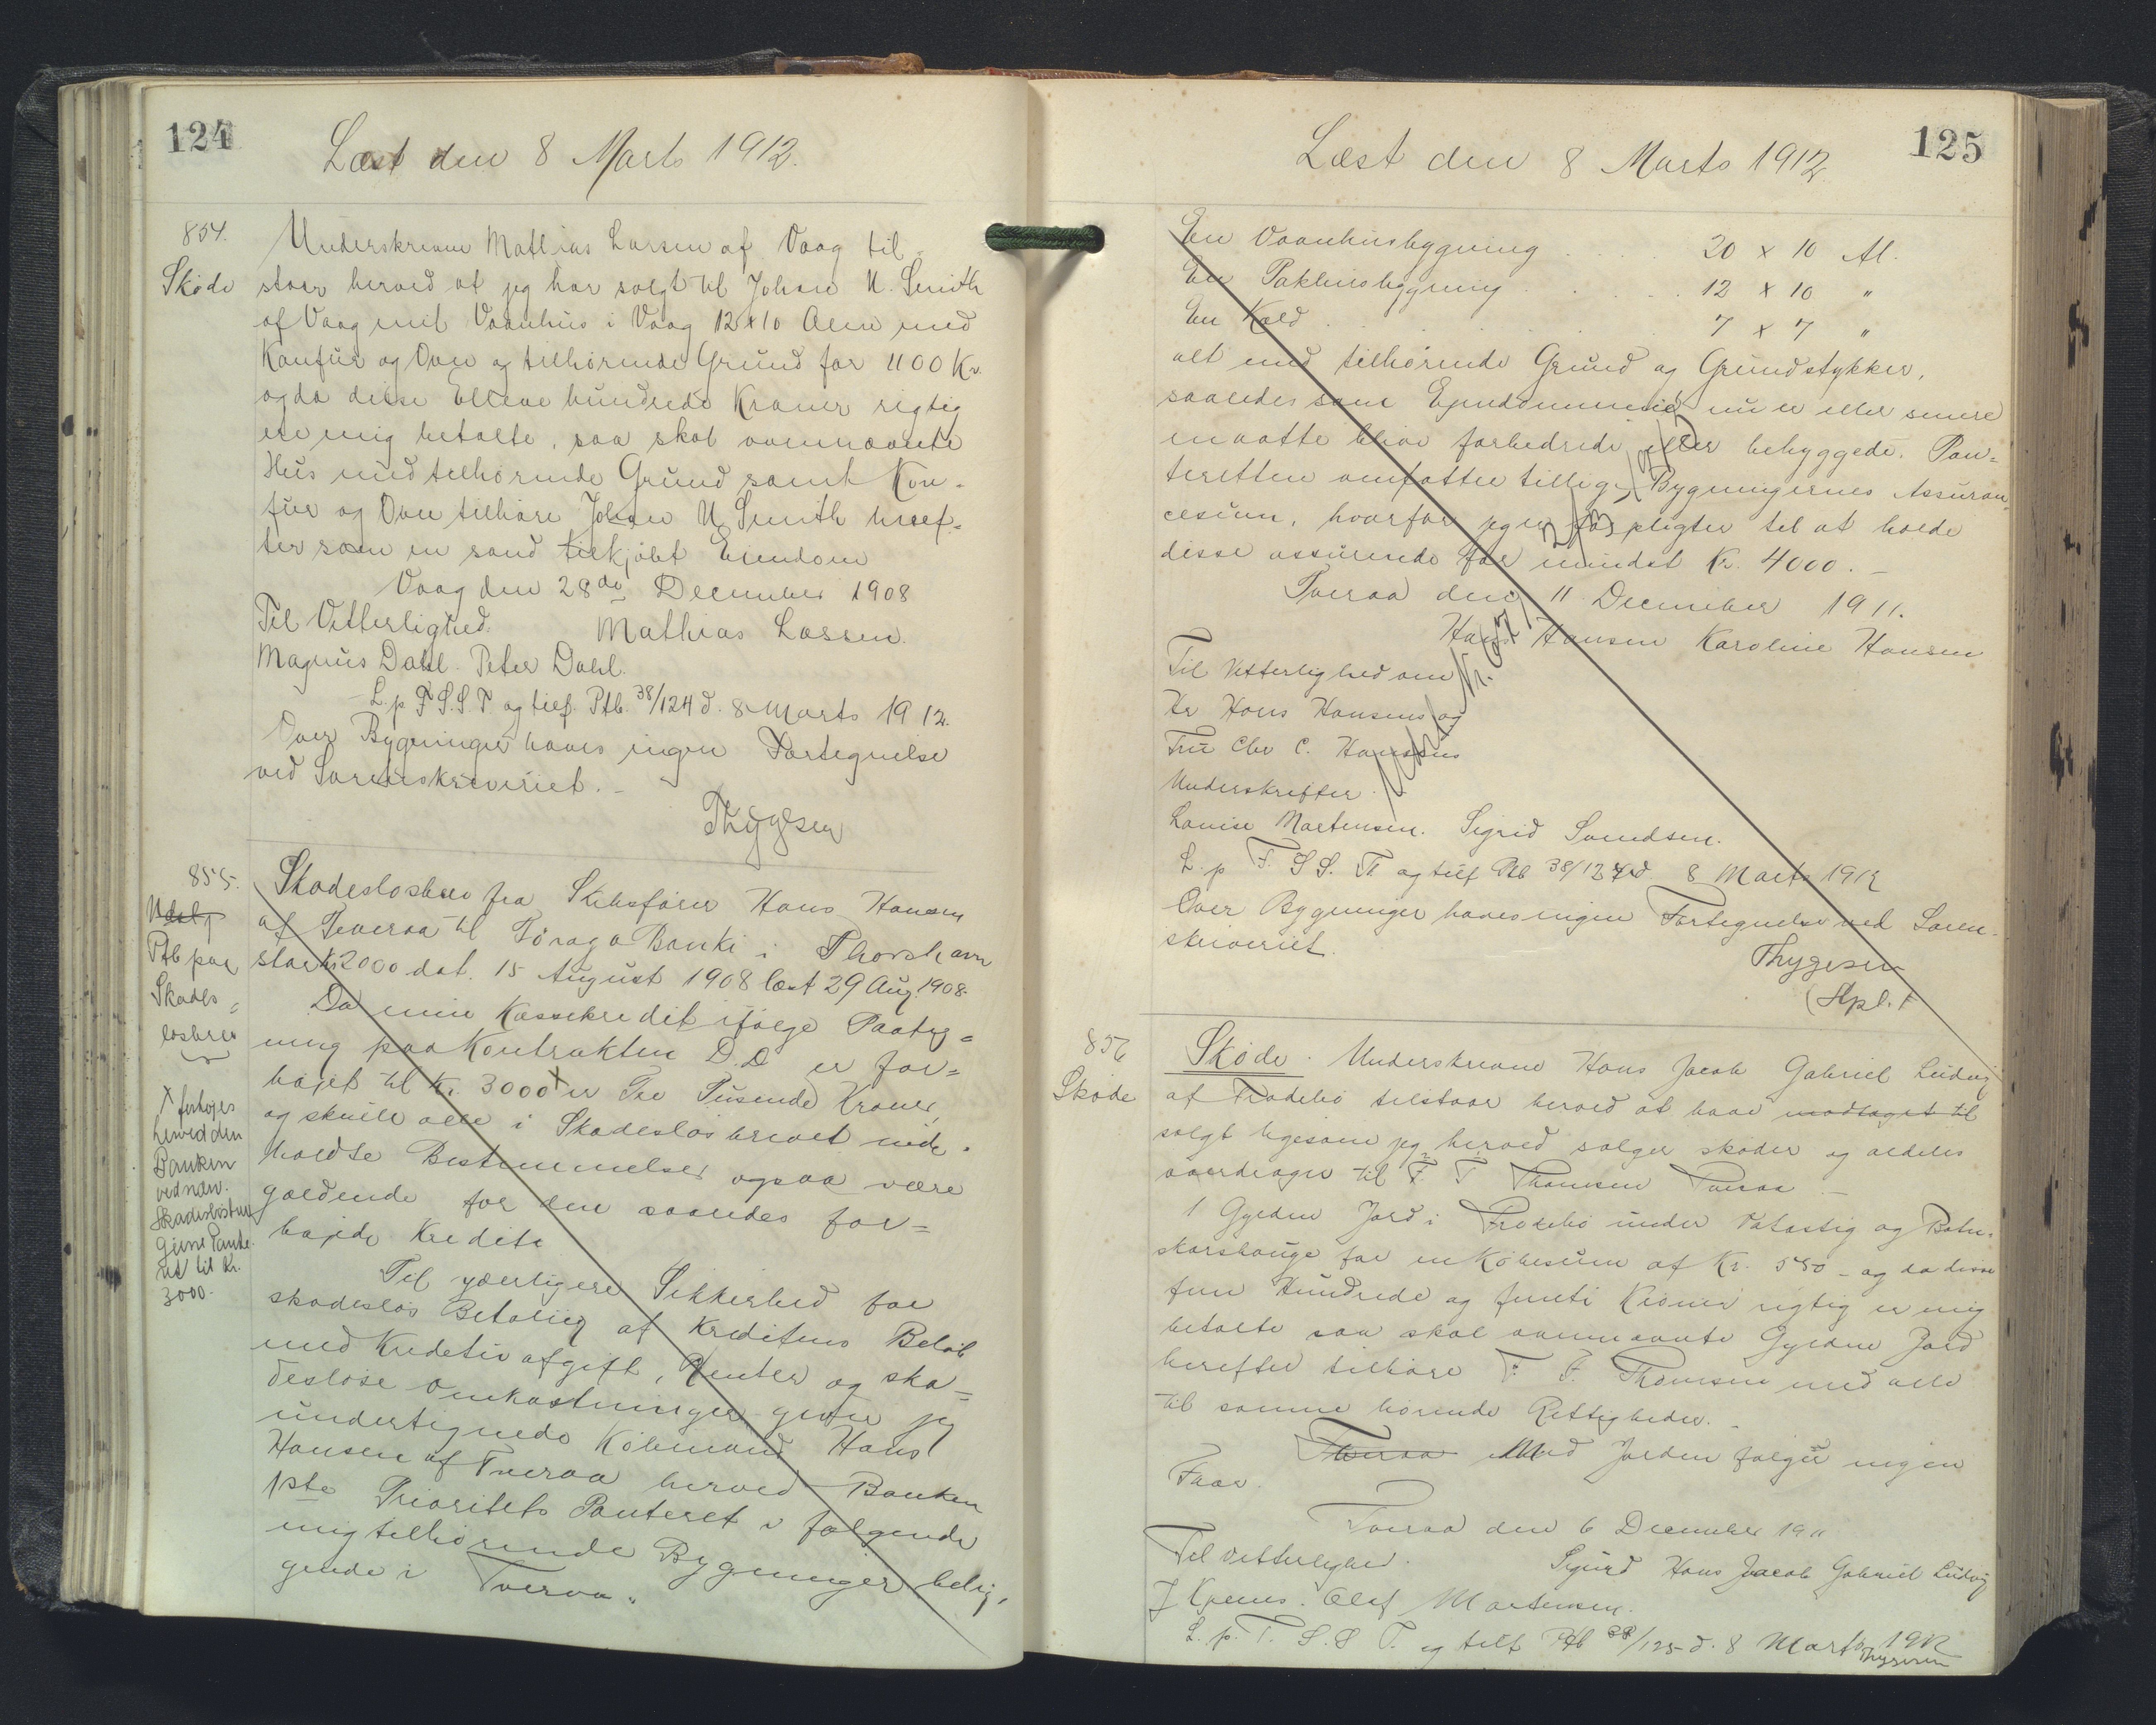 124
Læst den 8 Marts 1912.
854.
Skøde
Underskrevne Mathias Larsen af Vaag til-
staar herved at jeg har solgt til Johan U. Smith
af Vaag mit Vaanhus i Vaag 12 x 10 Alen med
Komfür og Ovn og tilhørende Grund for 1100 Kr.
og da disse Elleve hundrede Kroner rigtig
ere mig betalte, saa skal ovennævnte
Hus med tilhørende Grund samt Kom-
für og Ovn tilhøre Johan U Smith heref-
ter som en sand tilkjøbt Eiendom
Vaag den 28de December 1908
Til Vitterlighed. Mathias Larsen.
Magnus Dahl. Peter Dahl.
L. p F. S. S. T og tilf. Ptb. 38/124 d. 8 Marts 1912.
Over Bygninger haves ingen Fortegnelse
ved Sorenskriveriet. -
Thygesen
855.
Udsl
Ptb paa
Skades-
løsbrev
x forhøjes
herved den
Banken
ved nævn.
Skadesløsbrev
givne Pante-
ret til Kr.
3000.
Skadesløsbrev fra Skibsfører Hans Hansen
af Tveraa til Føroya Banki i Thorshavn
stor Kr. 2000 dat. 15 August 1908 læst 29 Aug. 1908.
Da min Kassekredit ifølge Paateg-
ning paa Kontrakten D.D er for-
højet til Kr. 3000 x er Tre Tusende Kroner,
og skulle alle i Skadesløsbrevet inde-
holdte Bestemmelser ogsaa være
gældende for den saaledes for-
højede Kredit.
Til yderligere Sikkerhed for
skadesløs Betaling af Kreditens Beløb
med Kreditivafgift, Renter og ska-
desløse Omkostninger giver jeg
undertegnede Købmand Hans
Hansen af Tveraa herved Banken
1ste Prioritets Panteret i følgende
mig tilhørende Bygninger belig-
gende i Tveraa.
125
Læst den 8 Marts 1912
En Vaanhusbygning . . . . . 20 x 10 Al.
En Pakhusbygning . . . . . 12 x 10 "
En Kold . . . . . 7 x 7 "
alt med tilhørende Grund og Grundstykker,
saaledes som Ejendommene nu er eller senere
maatte blive forbedrede eller bebyggede. Pan-
teretten omfatter tillige Bygningernes Assuran-
cesum, hvorfor jeg er forpligtet til at holde
disse assurerede for mindst Kr. 4000. -
Tveraa den 11 December 1911.
Hans Hansen Karoline Hansen
Til Vitterlighed om
Hr Hans Hansens og
Fru Chr C. Hansens
Underskrifter.
Louise Mortensen. Sigrid Svendsen.
L. p F. S S. T og tilf Ptb 38/124 d. 8 Marts 1912
Over Bygninger haves ingen Fortegnelse ved Soren-
skriveriet.
Thygesen
856
Skøde
Skøde. Underskrevne Hans Jacob Gabriel Ludvig
af Frodebø tilstaar herved at have modtaget til
solgt ligesom jeg herved sælger skøder og aldeles
overdrager til F. F Thomsen Tveraa -
1 Gylden Jord i Frodebø under
for en Købesum af Kr. 550 - og da disse
fem Hundrede og femti Kroner rigtig er mig
betalte saa skal ovennævnte Gylden Jord
herefter tilhøre F. F. Thomsen med alle
til samme hørende Rettigheder. -
Tveraa Med Jorden følger ingen
Faar.
Tveraa den 6 December 1911
Til Vitterlighed. Sigurd Hans Jacob Gabriel Ludvig
Olaf Mortensen.
L. p. F. S. S T. og tilf Ptb 38/125 d. 8 Marts 1912
Thygesen